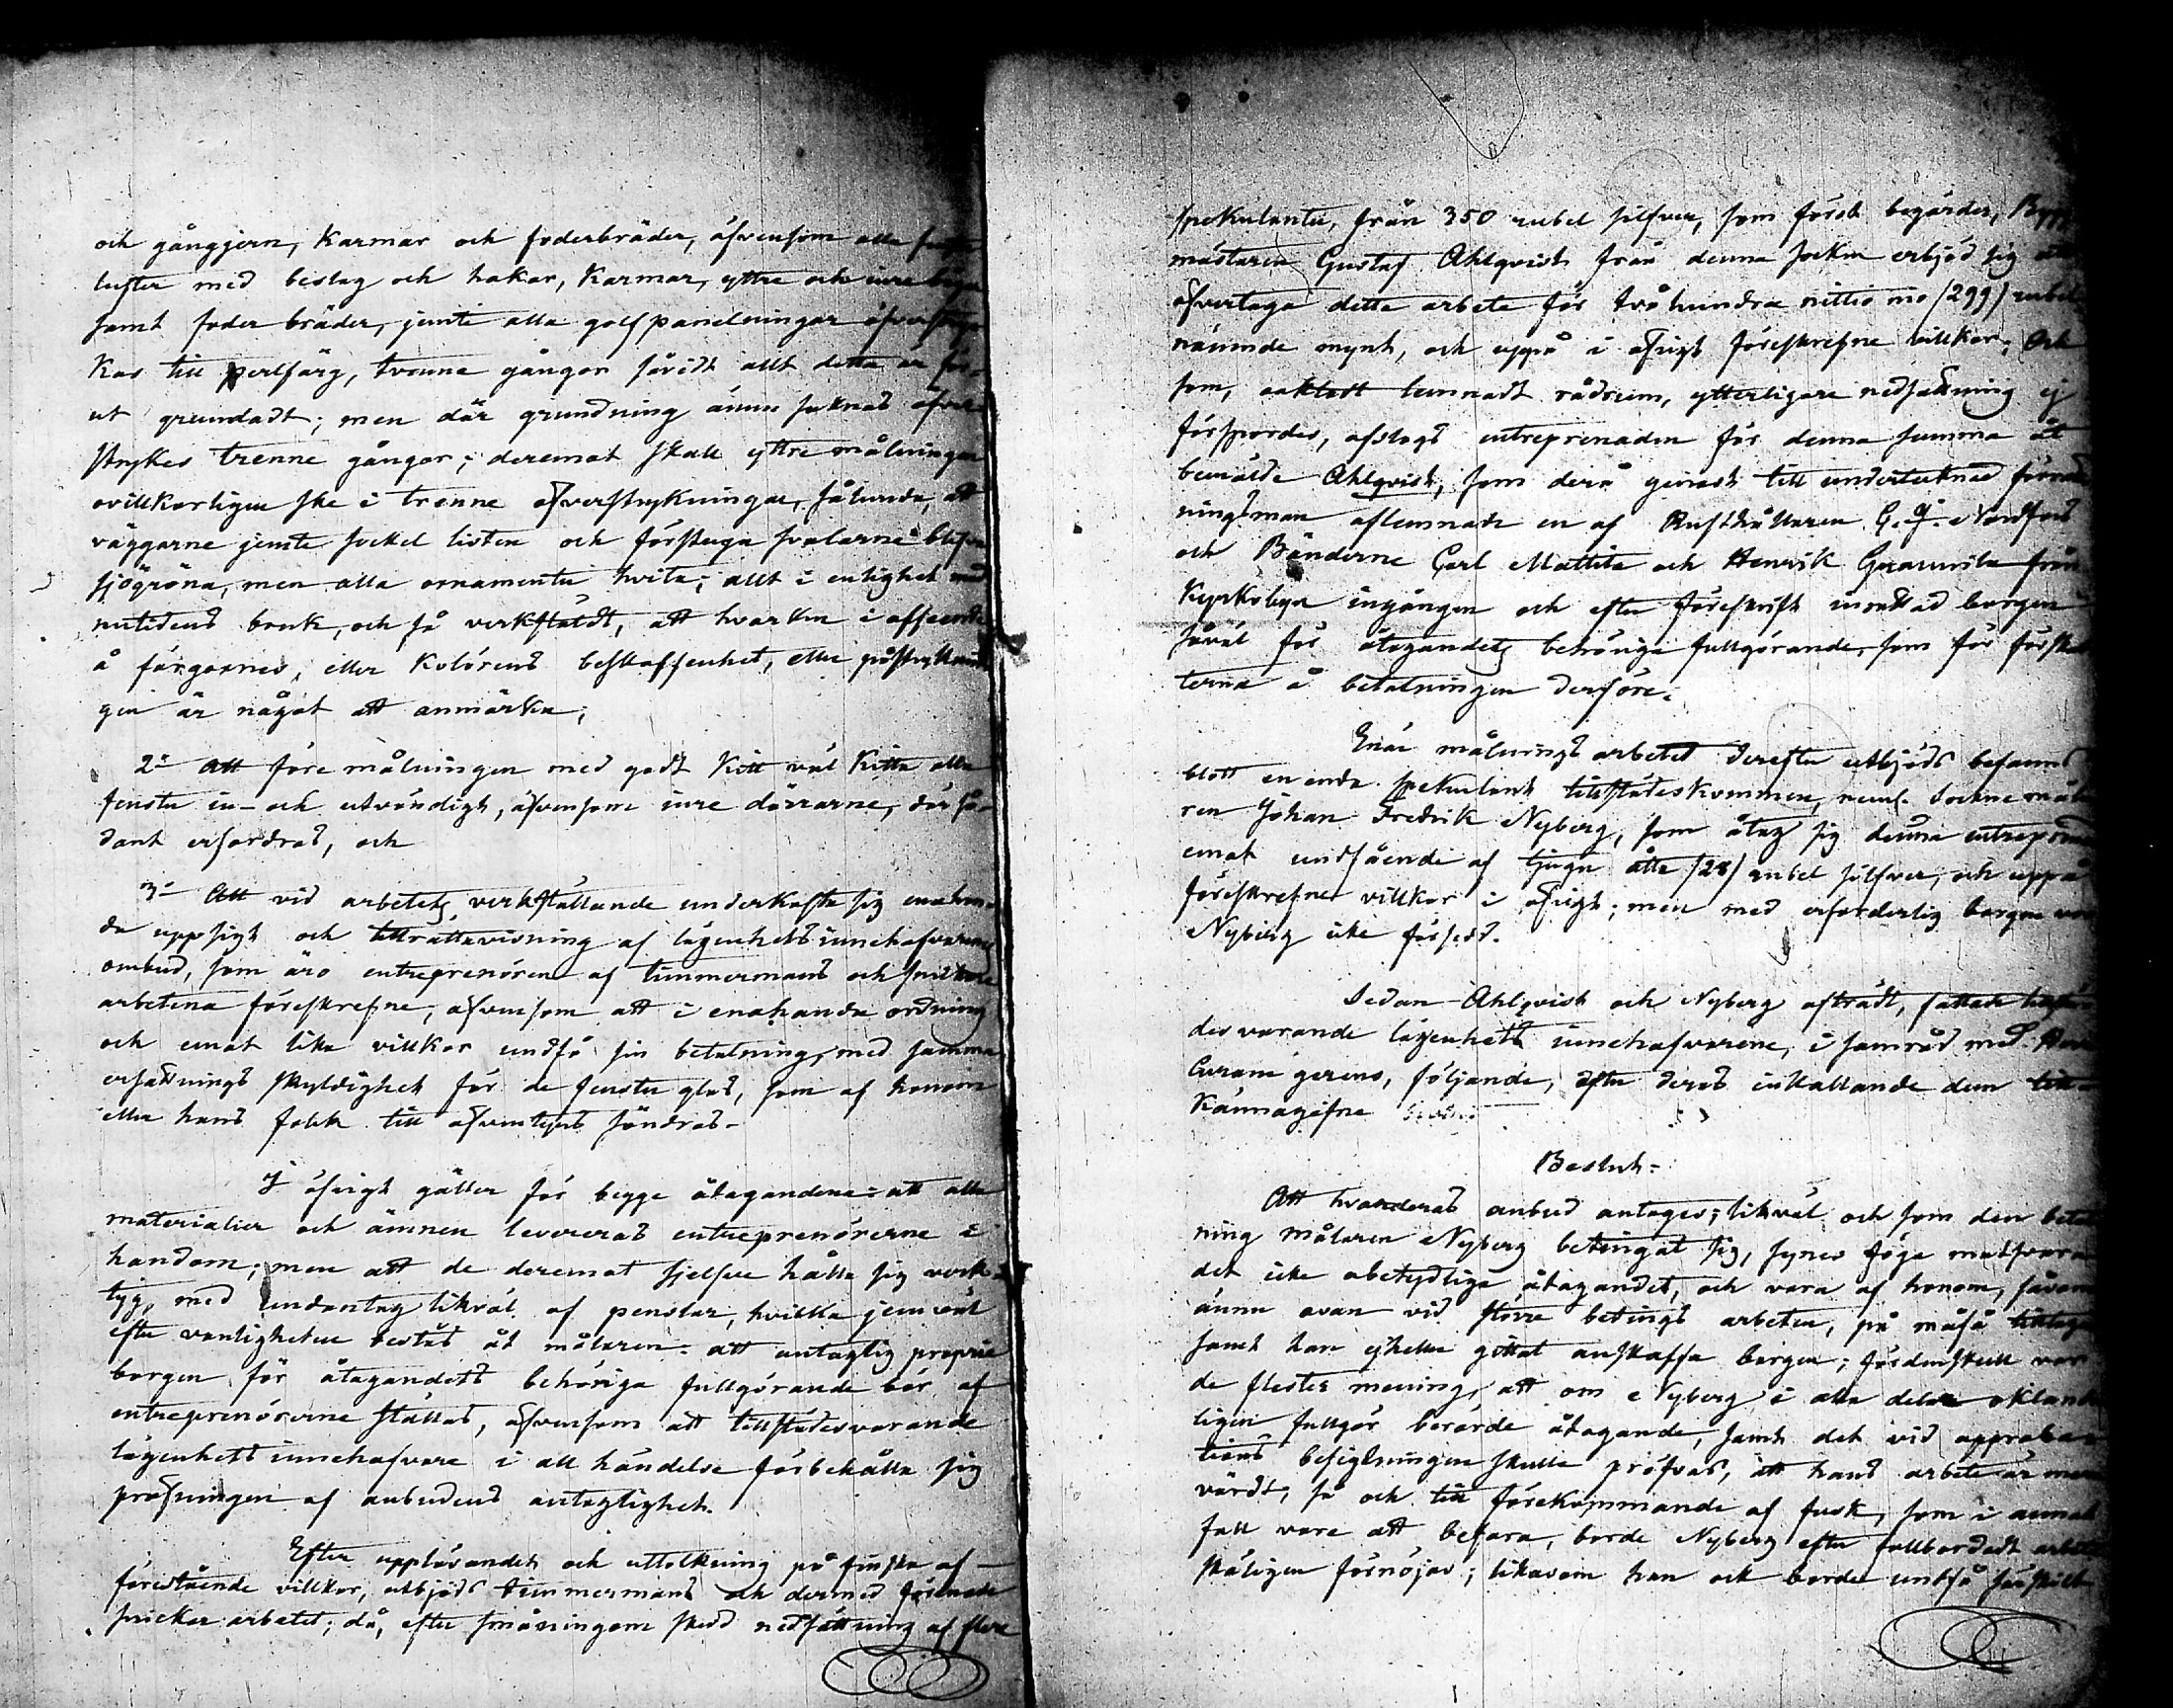 och gångjern, Karmar och foderbräder, äfvensom alla
lufter med beslag och hakar, Karmar, yttre och inre
samt foder bräder, jemte alla golfpanelningar öfverstry-
kas till perlfärg, tvenne gånger såvidt allt detta är för-
ut grundadt; men där grundning ännu saknas öfver-
strykes trenne gånger; deremot skall yttre målningen
ovillkorligen ske i trenne öfverstrykningar, sålunda, att
väggarne jemte sockel listen och förstuga svalarne blifva
sjögröna, men alla ornamenter hvita; allt i enlighet med
nutidens bruk, och så verkstäldt, att hvarken i afseende
å färgornes, eller Kolörens beskaffenhet, eller påstryknin-
gen är något att anmärka;
2o Att före målningen med godt Kitt väl Kitta alla
fenster in- och utvändigt, äfvensom inre dörrarne, der så-
dant erfordras, och
3o Att vid arbetets verkställande underkasta sig enahan-
da uppsigt och tillrättavisning af lägenhets innehafvarenes
ombud, som äro entreprenören af timmermans och snickare
arbetena föreskrefne, äfvensom att i enahanda ordning
och emot lika villkor undfå sin betalning, med samma
ersättnings skyldighet för de fenster glas, som af honom
eller hans folk till äfventyrs söndras-
I öfrigt gäller för begge åtagandena: att alla
materialier och ämnen levereras entreprenörerne i
handom; men att de deremot sjelfve hålla sig verk-
tyg, med undantag likväl af penslar, hvilka jemväl
efter vanligheten bestås åt målaren: att antaglig proprie
borgen för åtagandets behöriga fullgörande bör af
entreprenörerne ställas, äfvensom att tillstädesvarande
lägenhets innehafvare i all händelse förbehålla sig
pröfningen af anbudens antaglighet.
Efter uppläsandet och uttolkning på finska af
förestående villkor, utbjöds timmermans och dermed förenade
snickar arbetet; då, efter småningom skedd nedsättning af flere
spekulanter, från 350 rubel silfver, som först begärdes, Bygg-
mästaren Gustaf Ahlqvist från denna socken erbjöd sig att
öfvertaga detta arbete för tvåhundra nittio nio (299) rubel
nämnde mynt, och uppå i öfrigt föreskrefne villkor; Och
som, oaktadt lemnadt rådrum, ytterligare nedsättning ej
förspordes, afslogs entreprenaden för denna summa åt
bemälde Ahlqvist, som derå genast till undertecknad förrätt-
ningsman aflemnade en af Rusthållaren G. J. Nordfors
och Bönderne Carl Mattila och Henrik Grannila från
Kyrkobyn ingången och efter föreskrift inrättad borgen
såväl för åtagandets behöriga fullgörande, som för förskot-
terna å betalningen derföre.
Enär målnings arbetet derefter utbjöds befanns
blott en enda spekulant tillstädeskommen, neml. Sockne måla-
ren Johan Fredrik Nyberg, som åtog sig denna entreprenad
emot undfående af tjugu åtta (28) rubel silfver, och uppå
föreskrefne villkor i öfrigt; men med erforderlig borgen var
Nyberg icke försedd.
Sedan Ahlqvist och Nyberg afträdt, fattade tillstä-
desvarande lägenhets innehafvarene, i samråd med Herr
Curam gerens, följande, efter deras inkallande dem till-
Kännagifne
Beslut-
Att hvarderas anbud antages; likväl och som den betal-
ning målaren Nyberg betingat sig, synes föga motsvara
det icke obetydliga åtagandet, och vara af honom, såsom
ännu ovan vid större betings arbeten, på måfå tilltagen
samt han ejheller gittat anskaffa borgen; fördenskull var
de flestes mening, att om Nyberg i alla delar oklander-
ligen fullgör berörde åtagande, samt det vid approba-
tions besigtningen skulle pröfvas, att hans arbete är mera
värdt, så och till förekommande af fusk, som i annat
fall vore att befara, borde Nyberg efter fullbordadt arbete
skäligen förnöjas; likasom han ock borde undfå särskilt